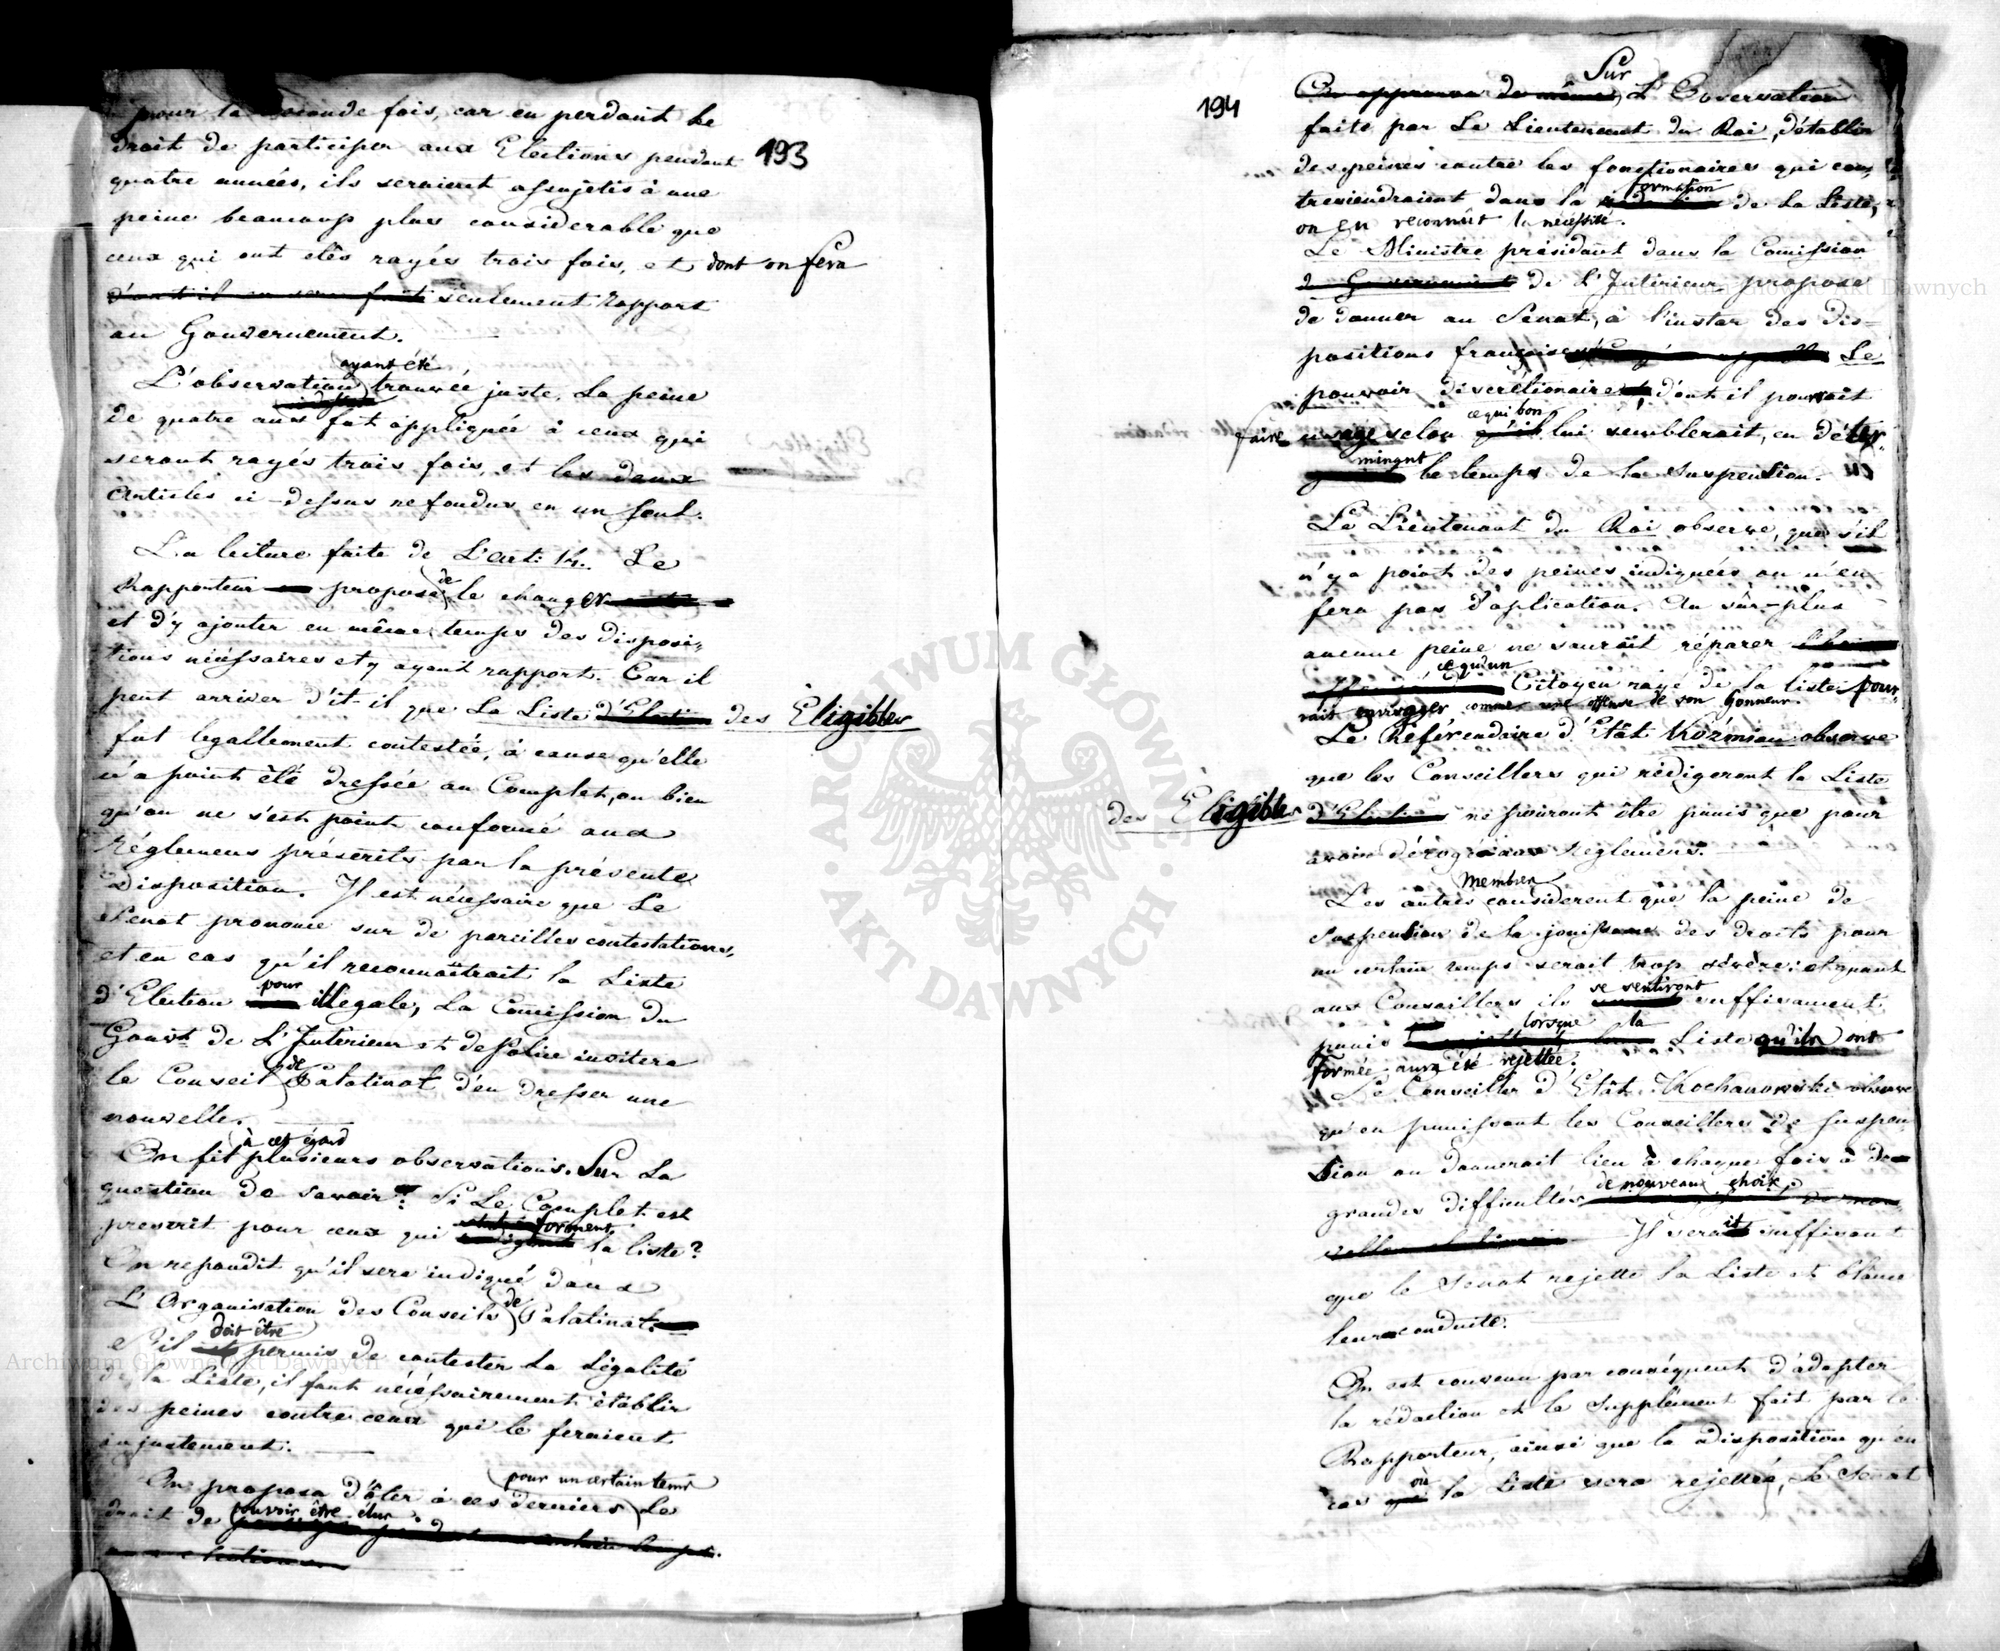 193
pour la seconde fois, car en perdant le
droit de participer aux Elections pendant
quatre années, ils seraient assujetis à une
peine beaucoup plus considerable que
ceux qui ont étés rayés trois fois, et dont on fera
d'ont il en sera fait seulement rapport
au Gouvernement.
ayant été
L'observation trouvée juste, la peine
de quatre ans fut appliquée à ceux qui
seront rayés trois fois, et les deux
Articles ci-dessus refondus en un seul.
La lecture faite de L'art: 14. Le
Rapporteur propose de le changer
et d'y ajouter en même temps des disposi-
tions nécessaires et y ayant rapport. Car il
peut arriver d'it-il que La Liste d'Election des Eligibles
fut legallement contestée, à cause qu'elle
n'a point été dressée au Complet, ou bien
qu'on ne s'est point conformé aux
Réglemens préscrits par la présente
Disposition. Il est nécessaire que Le
Senat prononce sur de pareilles contestations,
et en cas qu'il reconnaîtrait la Liste
d'Election pour illégale, La Comission du
Gouvt de L'Intérieur et de Police invitera
le Conseil de Palatinat d'en dresser une
nouvelle.
à cet égard
On fit plusieurs observations. Sur La
question de savoir? Si Le Complet est
prescrit pour ceux qui forment la liste?
On repondit qu'il sera indiqué dans
L'Organisation des Conseils de Palatinat.
doit être
S'il est permis de contester La Légalité
de la Liste, il faut nécéssairement établir
des peines contre ceux qui le feraient
injustement.
pour un certain tems
On proposa d'ôter à ces derniers Le
droit de pouvoir être élus.
aux elections
194
Sur
On approuva de même L'Observation
faite par Le Lieutenant du Roi, d'établir
des peines contre les fonctionaires qui con-
formation
treviendraient dans la de La Liste,
on en reconnut la nécéssité.
Le Ministre présidant dans la Comission
de Gouvernement de L'Intérieur propose
de donner au Senat, à l'instar des Dis-
positions françaises Le
pouvoir discrétionaire, d'ont il pourrait
faire usage selon ce qui bon qu'il lui semblerait, en déter-
minant le temps de la Suspention.
Le Lieutenant du Roi observe, que s'il
n'y a point des peines indiquées on n'en
fera pas d'aplication. Au sûr-plus
aucune peine ne saurait réparer
ce qu'un Citoyen rayé de la liste pour-
rait envisager comme une offense de son honneur.
Le Référendaire d'Etat Kozmian observe
que les Conseillers qui rédigeront la Liste
des Eligibles d'Election ne pouront être punis que pour
avoir dérogé aux Réglemens.
membres
Les autres considerent que la peine de
Suspention de la jouissance des droits pour
un certain temps serait trop sévère: et quant
aux Conseillers ils se sentiront suffisament
punis lorsque la Liste qu'ils ont
formée aura été rejettée.
Le Conseiller d'Etat Kochanowski observe
qu'en punissant les Conseillers de suspen-
tion on donnerait lieu à chaque fois à de
grandes difficultés de nouveaux choix.
Il serait suffisant
que le Senat rejette la Liste et blame
leur conduite.
On est convenu par conséquent d'adopter
la rédaction et le Supplement fait par le
Rapporteur, ainsi que la Disposition qu'en
cas où la Liste sera rejettée, Le Senat
ARCHIWUM GŁÓWNE AKT DAWNYCH
Archiwum Główne Akt Dawnych
Archiwum Główne Akt Dawnych